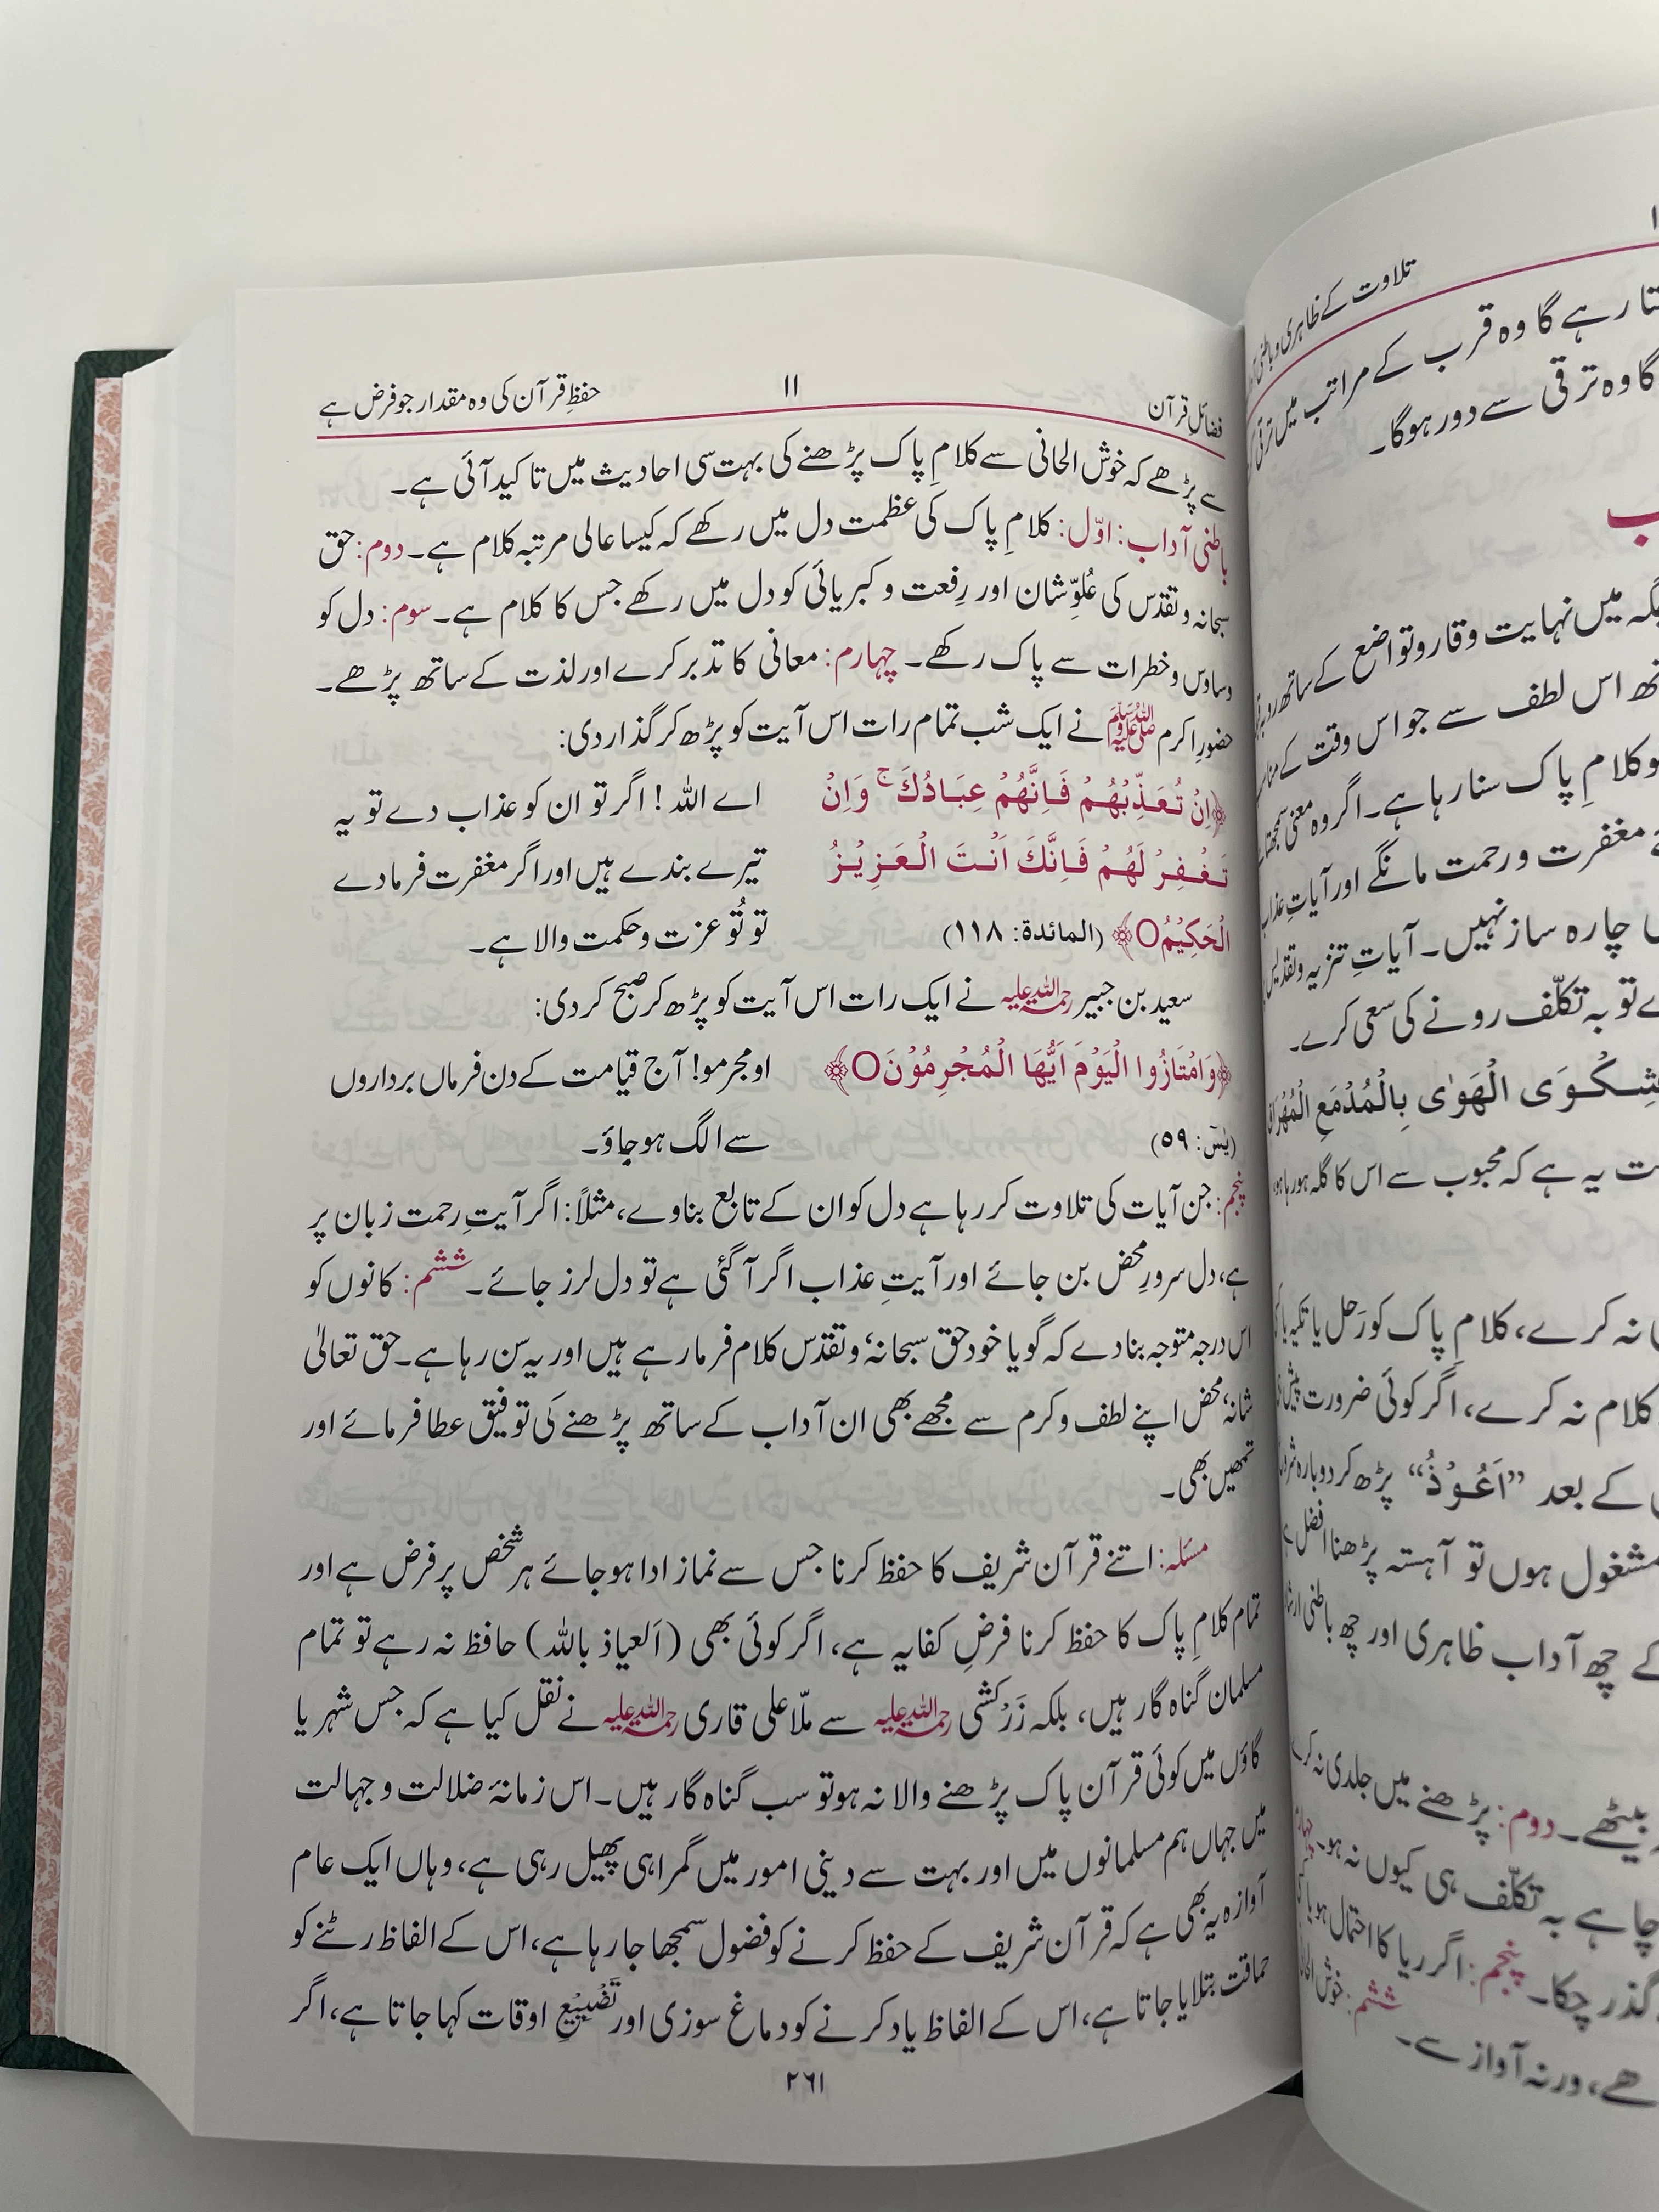 فضائلِ قرآن ۱۱ حفظِ قرآن کی وہ مقدار جو فرض ہے
سے پڑھے کہ خوش الحانی سے کلامِ پاک پڑھنے کی بہت سی احادیث میں تاکید آئی ہے۔
باطنی آداب: اوّل: کلامِ پاک کی عظمت دل میں رکھے کہ کیسا عالی مرتبہ کلام ہے۔ دوم: حق
سبحانہ و تقدّس کی عُلوِّ شان اور رِفعت و کبریائی کو دل میں رکھے جس کا کلام ہے۔ سوم: دل کو
وساوس و خطرات سے پاک رکھے۔ چہارم: معانی کا تدبر کرے اور لذت کے ساتھ پڑھے۔
حضورِ اکرم ﷺ نے ایک شب تمام رات اس آیت کو پڑھ کر گذار دی:
﴿اِنْ تُعَذِّبْهُمْ فَاِنَّهُمْ عِبَادُكَ ۚ وَاِنْ اے اللہ! اگر تو ان کو عذاب دے تو یہ
تَغْفِرْ لَهُمْ فَاِنَّكَ اَنْتَ الْعَزِيْزُ تیرے بندے ہیں اور اگر مغفرت فرمادے
الْحَكِيْمُ○﴾ (المائدة: ۱۱۸) تو تُو عزت و حکمت والا ہے۔
سعید بن جبیر رحمۃ اللہ علیہ نے ایک رات اس آیت کو پڑھ کر صبح کردی:
﴿وَامْتَازُوا الْيَوْمَ اَيُّهَا الْمُجْرِمُوْنَ○﴾ او مجرمو! آج قیامت کے دن فرماں برداروں
(يٰسٓ: ۵۹) سے الگ ہوجاؤ۔
پنجم: جن آیات کی تلاوت کر رہا ہے دل کو ان کے تابع بناوے، مثلاً: اگر آیتِ رحمت زبان پر
ہے، دل سرورِ محض بن جائے اور آیتِ عذاب اگر آگئی ہے تو دل لرز جائے۔ ششم: کانوں کو
اس درجہ متوجہ بنادے کہ گویا خود حق سبحانہٗ و تقدّس کلام فرما رہے ہیں اور یہ سن رہا ہے۔ حق تعالیٰ
شانہٗ محض اپنے لطف و کرم سے مجھے بھی ان آداب کے ساتھ پڑھنے کی توفیق عطا فرمائے اور
تمھیں بھی۔
مسئلہ: اتنے قرآن شریف کا حفظ کرنا جس سے نماز ادا ہوجائے ہر شخص پر فرض ہے اور
تمام کلامِ پاک کا حفظ کرنا فرضِ کفایہ ہے، اگر کوئی بھی (اَلعیاذ باللہ) حافظ نہ رہے تو تمام
مسلمان گناہ گار ہیں، بلکہ زَرْکشی رحمۃ اللہ علیہ سے ملّا علی قاری رحمۃ اللہ علیہ نے نقل کیا ہے کہ جس شہر یا
گاؤں میں کوئی قرآن پاک پڑھنے والا نہ ہو تو سب گناہ گار ہیں۔ اس زمانۂ ضلالت و جہالت
میں جہاں ہم مسلمانوں میں اور بہت سے دینی امور میں گمراہی پھیل رہی ہے، وہاں ایک عام
آوازہ یہ بھی ہے کہ قرآن شریف کے حفظ کرنے کو فضول سمجھا جا رہا ہے، اس کے الفاظ رٹنے کو
حماقت بتلایا جاتا ہے، اس کے الفاظ یاد کرنے کو دماغ سوزی اور تَضْیِیْعِ اوقات کہا جاتا ہے، اگر
۲۶۱
تلاوت کے ظاہری و باطنی
رہے گا وہ قرب کے مراتب میں
گا وہ ترقی سے دور ہوگا۔
میں نہایت وقار و تواضع کے ساتھ
اس لطف سے جو اس وقت کے
کلامِ پاک سنا رہا ہے۔ اگر وہ معنی
مغفرت و رحمت مانگے اور آیاتِ
چارہ ساز نہیں۔ آیاتِ تنزیہ و تقدیس
تو بہ تکلّف رونے کی سعی کرے۔
الْهَوٰى بِالْمُدْمَعِ الْمُهْرَاقِ
یہ ہے کہ محبوب سے اس کا گلہ ہو رہا ہو،
نہ کرے، کلامِ پاک کو رَحل یا تکیہ یا
کلام نہ کرے، اگر کوئی ضرورت پیش
کے بعد ”اَعُوْذُ“ پڑھ کر دوبارہ
مشغول ہوں تو آہستہ پڑھنا افضل
کے چھ آداب ظاہری اور چھ باطنی
بیٹھے۔ دوم: پڑھنے میں جلدی نہ کرے
چاہے بہ تکلّف ہی کیوں نہ ہو۔
گذر چکا۔ پنجم: اگر ریا کا احتمال ہو یا
ورنہ آواز سے۔ ششم: خوش